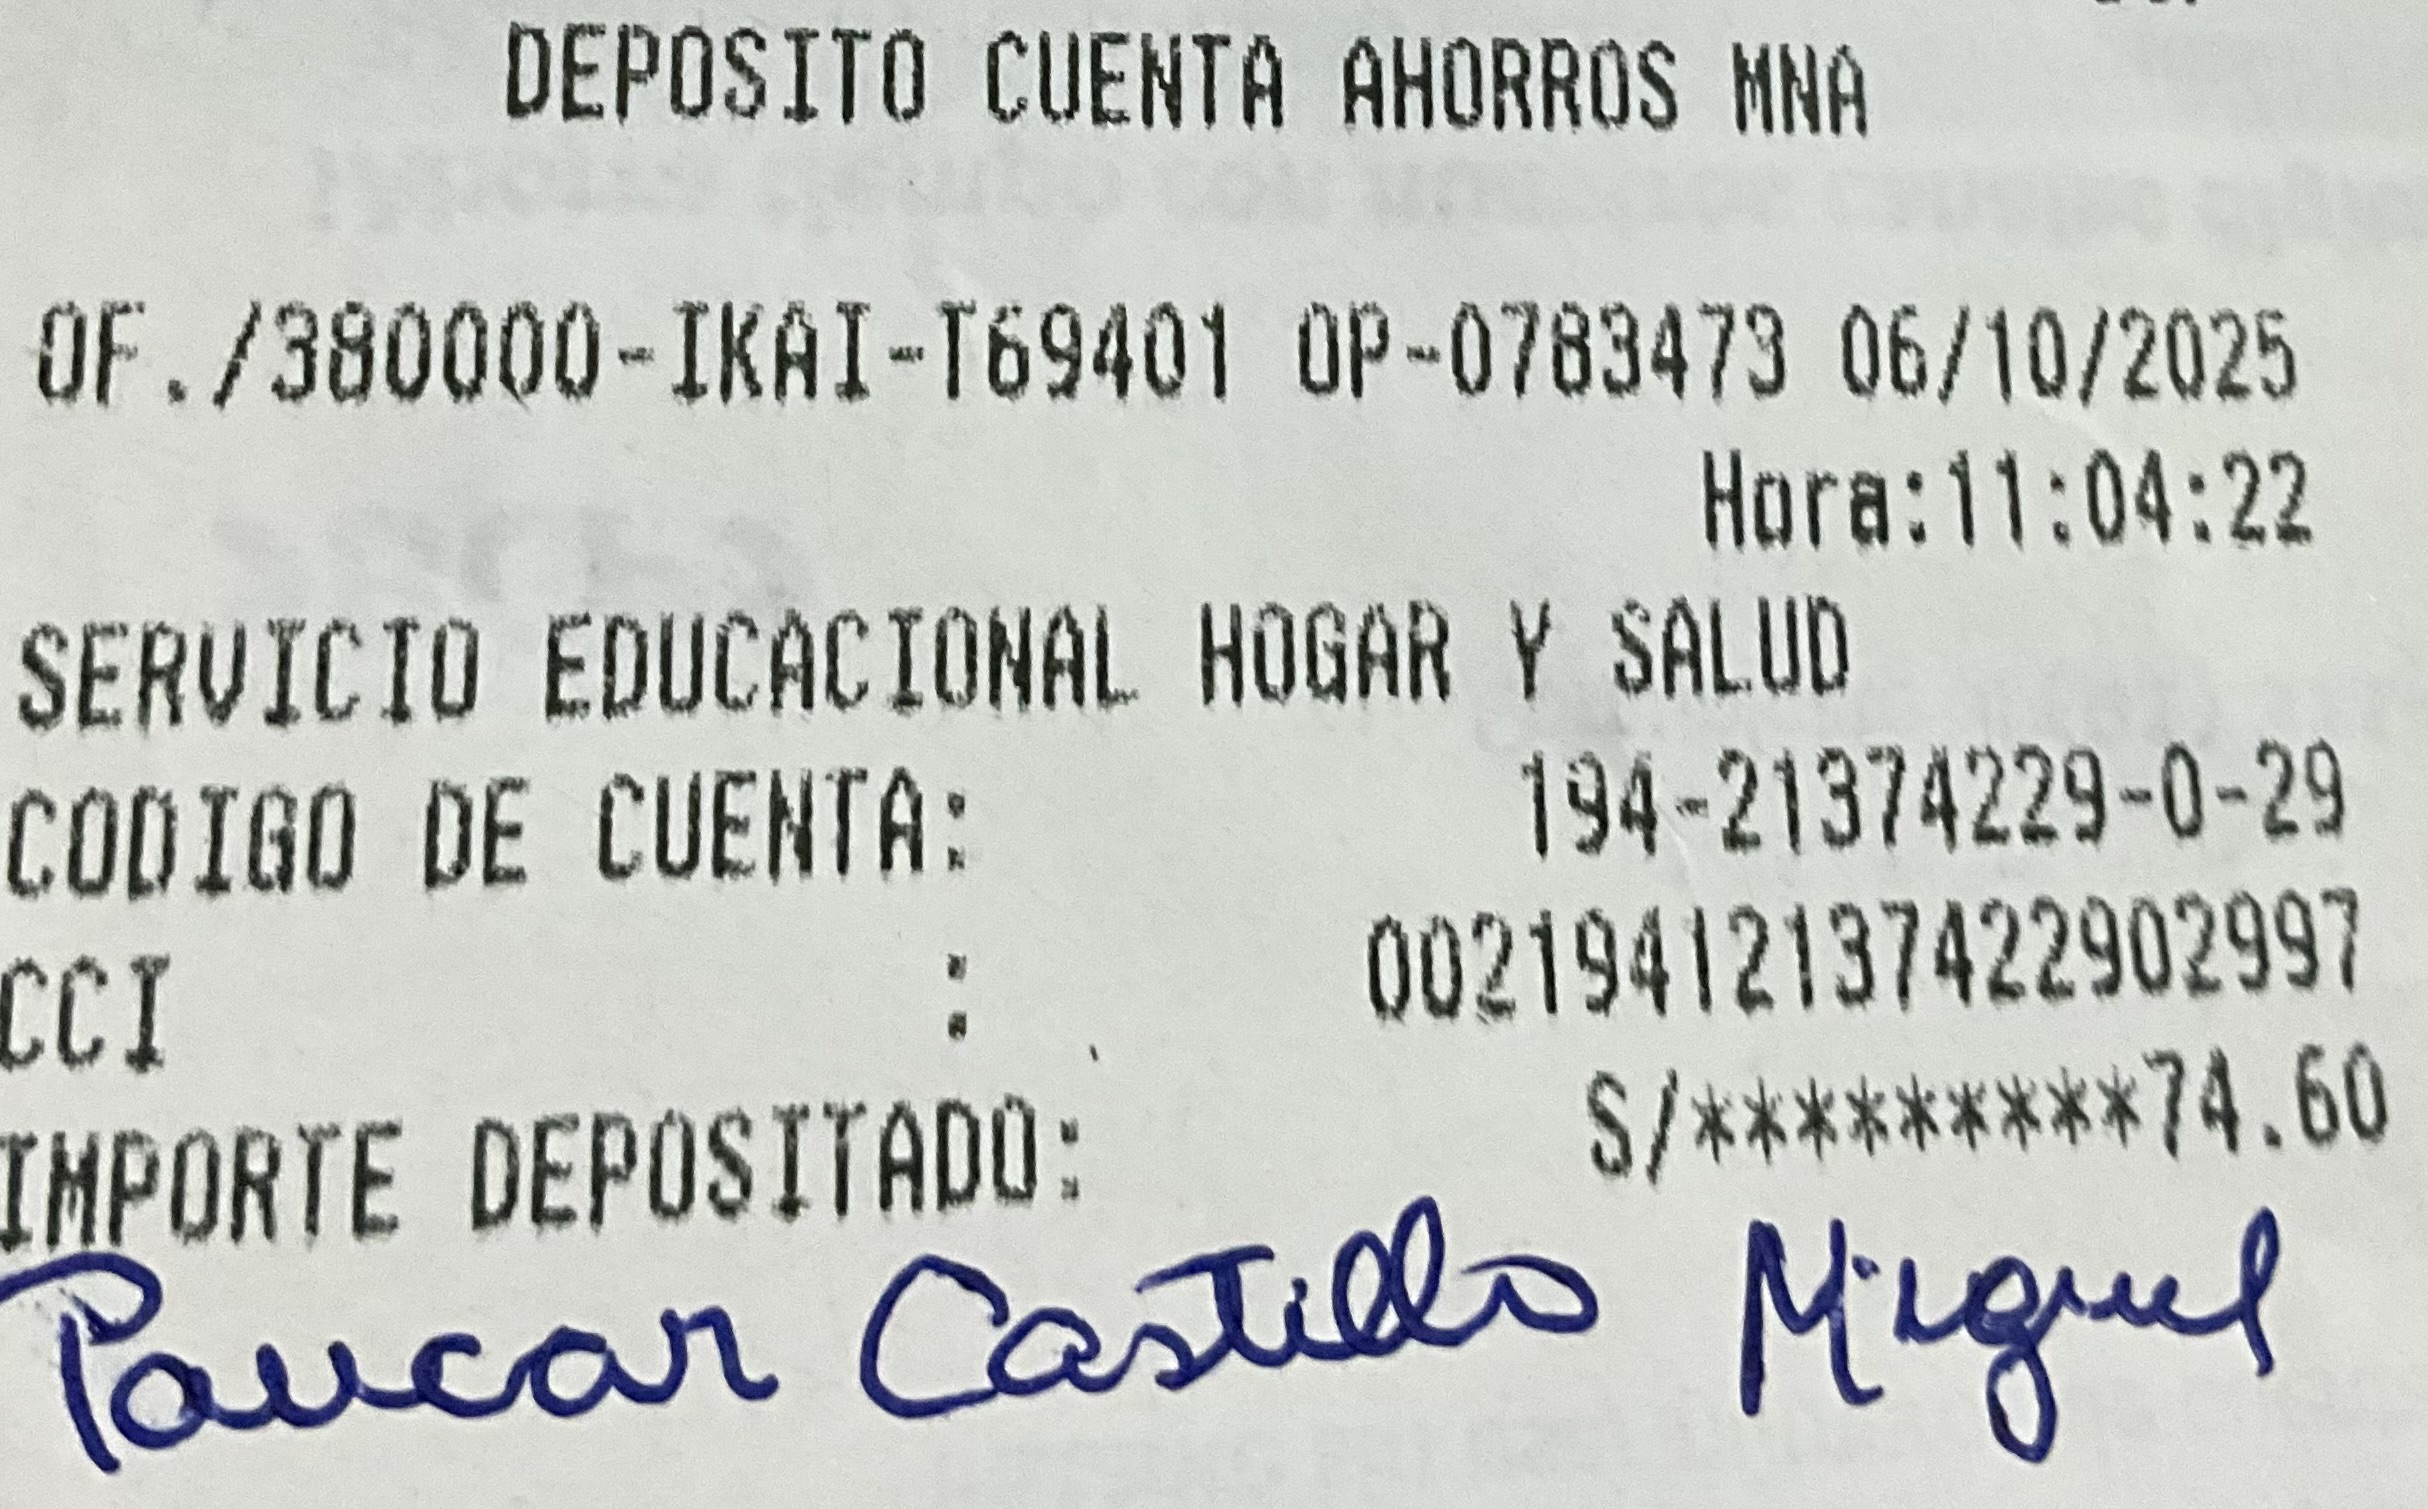 DEPOSITO CUENTA AHORROS MNA
OF./380000-IKAI-T69401 OP-0783473 06/10/2025
Hora:11:04:22
SERVICIO EDUCACIONAL HOGAR Y SALUD
CODIGO DE CUENTA: 194-21374229-0-29
CCI : 00219412137422902997
IMPORTE DEPOSITADO: S/*********74.60
Paucar Castillo Miguel